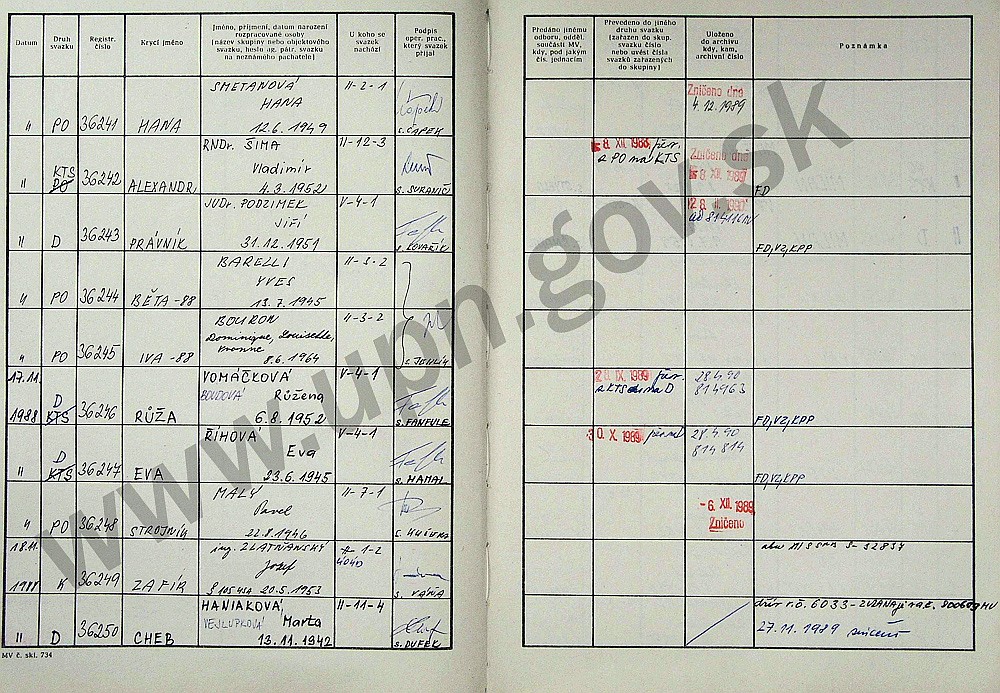 Datum
Druh svazku
Registr. číslo
Krycí jméno
Jméno, příjmení, datum narození rozpracované osoby (název skupiny nebo objektového svazku, heslo ag. pátr. svazku na neznámého pachatele)
U koho se svazek nachází
Podpis oper. prac., který svazek přijal
Předáno jinému odboru, odděl. součásti MV, kdy, pod jakým čís. jednacím
Převedeno do jiného druhu svazku (zařazen do skup. svazku číslo nebo uvést čísla svazků zařazených do skupiny)
Uloženo do archivu kdy, kam, archivní číslo
Poznámka
SMETANOVÁ II-2-1
HANA
II PO 36241 HANA 12.6.1949 s. ČAPEK
Zničeno dne
4.12.1989
RNDr. ŠIMA II-12-3
KTS Vladimír
II PO 36242 ALEXANDR 4.3.1952
8. XII. 1988
z PO na KTS
Zničeno dne
8. XII. 1989
FD
JUDr. PODZIMEK V-4-1
Jiří
II D 36243 PRÁVNÍK 31.12.1951 s. KOVAŘÍK
FD, VZ, KPP
BARELLI II-3-2
YVES
II PO 36244 BĚTA-88 13.7.1945
BOURON II-3-2
Dominique, Louisette,
Yvonne
II PO 36245 IVA-88 8.6.1964
17.11. VOMÁČKOVÁ V-4-1
D BOUDOVÁ Růžena
1988 KTS 36246 RŮŽA 6.8.1952 s. FANFULE
28. IX. 1989
z KTS na D
28.4.90
814963
FD, VZ, KPP
ŘÍHOVÁ V-4-1
D Eva
II KTS 36247 EVA 23.6.1945 s. HAMAL
30. X. 1989
28.4.90
814814
FD, VZ, KPP
MALÝ II-7-1
Pavel
II PO 36248 STROJNÍK 22.8.1946
- 6. XII. 1989
Zničeno
18.11. ing. ZLATŇANSKÝ 1-2
Jozef
1988 K 36249 ZAFÍR 20.5.1953 s. VÁŇA
HANIAKOVÁ II-11-4
VEJLUPKOVÁ Marta
II D 36250 CHEB 13.11.1942 s. DUFEK
dřív r.č. 6033-
27.11.1989
MV č. skl. 734
www.upn.gov.sk